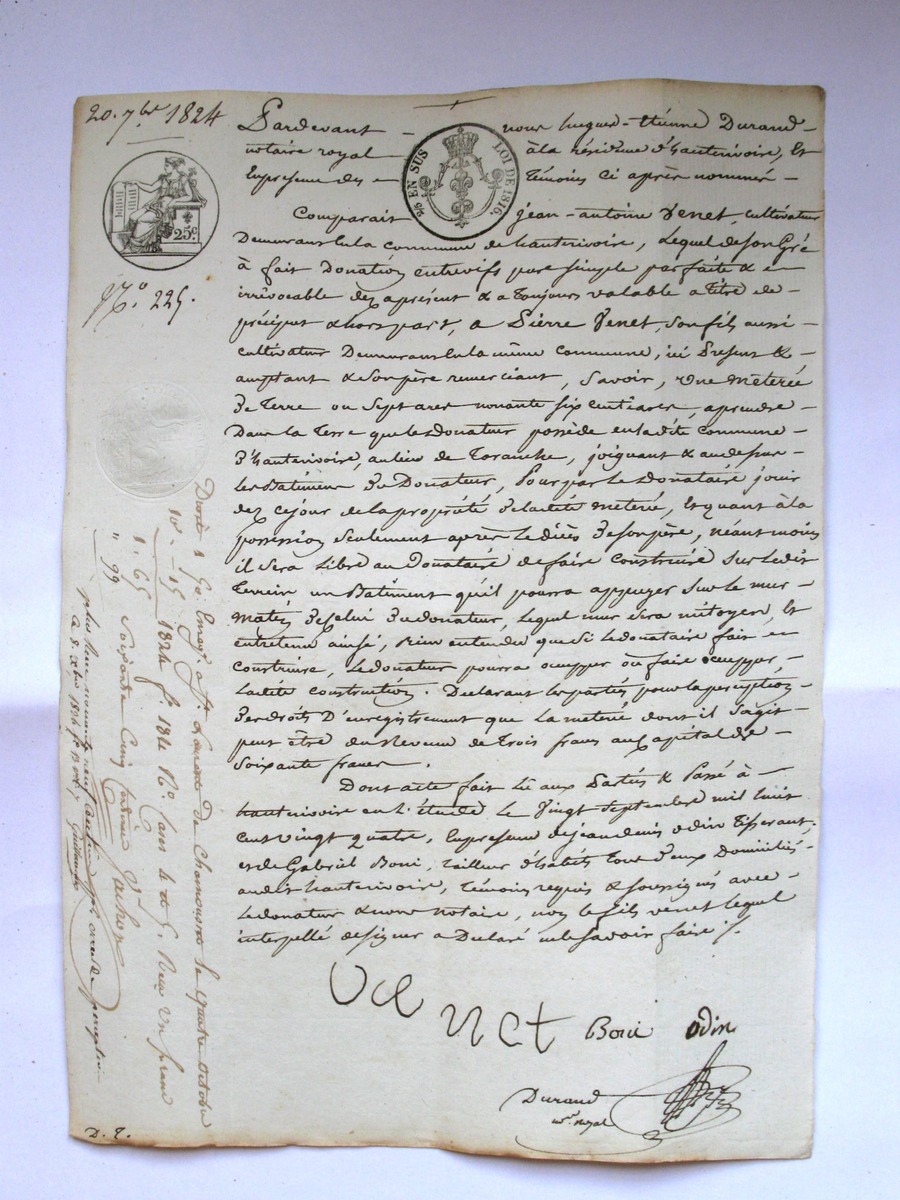 20. 7bre 1824
Pardevant nous hugues-Etienne Durand
notaire royal à la résidence d'hauterivoire, Et
En presence des Témoins ci après nommés
5/6 EN SUS LOI DE 1816.
25c.
N.o 225.
Comparait jean-antoine Venet, cultivateur
Demeurant En la commune de hauterivoire, Lequel de son Gré
à fait Donation entrevifs pure simple parfaite & et
irrévocable dez aprésent & a Toujours valable a titre de
préciput & hors part, a Pierre Venet, son fils aussi
cultivateur Demeurant En la même commune, ici Present &
acceptant & son père remerciant, Savoir, une Meterée
De Terre ou Sept ares nonante six centiares, aprendre
Dans la Terre que le donateur possède en ladite commune
D'hauterivoire, au lieu de Toranche, joignant & au dessus
les Batiments Du Donateur, Pour par le Donataire jouir
dez ce jour de la propriété de ladite meterée, Et quant à la
possession seulement après le décès De son père, néant moins
il sera Libre au Donataire de faire construire sur le dit
Terrein un Batiment qu'il pourra appuyer sur le mur
Matin De celui Du donateur, Lequel mur sera mitoyen, Et
entretenu ainsi, Bien entendu que si le donataire fait
construire, Le donateur pourra occupper ou faire occupper
Ladite construction. Declarant les parties pour la perception
Des droits D'enregistrement que La meterée dont il s'agit
peut être du Revenu de Trois francs au Capital de
Soixante francs.
Dont acte fait Lu aux Parties & Passé à
hauterivoire en L'étude Le Vingt Septembre mil huit
cent vingt quatre, En presence de jean denis odin Tisserant,
et de Gabriel Boni, tailleur d'habits tous Deux Domiciliés
audit hauterivoire, Témoins requis & soussignés avec
Le donateur & nous notaire, non le fils venet lequel
interpellé de signer a Declaré ne le savoir faire /.
Ve
net Boni odin
Durand
n.re royal
Enreg.é à St Laurent de Chamousset le quatre octobre
1824 f.o 184 R.o Reçu un franc
Soixante Cinq
1. 65
" 99
D. T.